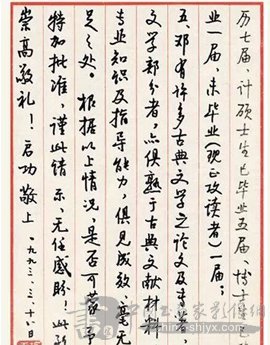 历七届，计硕士生已毕业五届，博士生已
业一届，未毕业（现正攻读者）一届；
五、邓有许多古典文学之论文及专著，
文学部分者，亦俱熟于古典文献材料
专业知识及指导能力，俱见成效，毫无
足之处。根据以上情况，是否可蒙予
特加批准，谨此请示，无任感盼！此致
崇高敬礼！启功敬上 一九九三.三.十八日